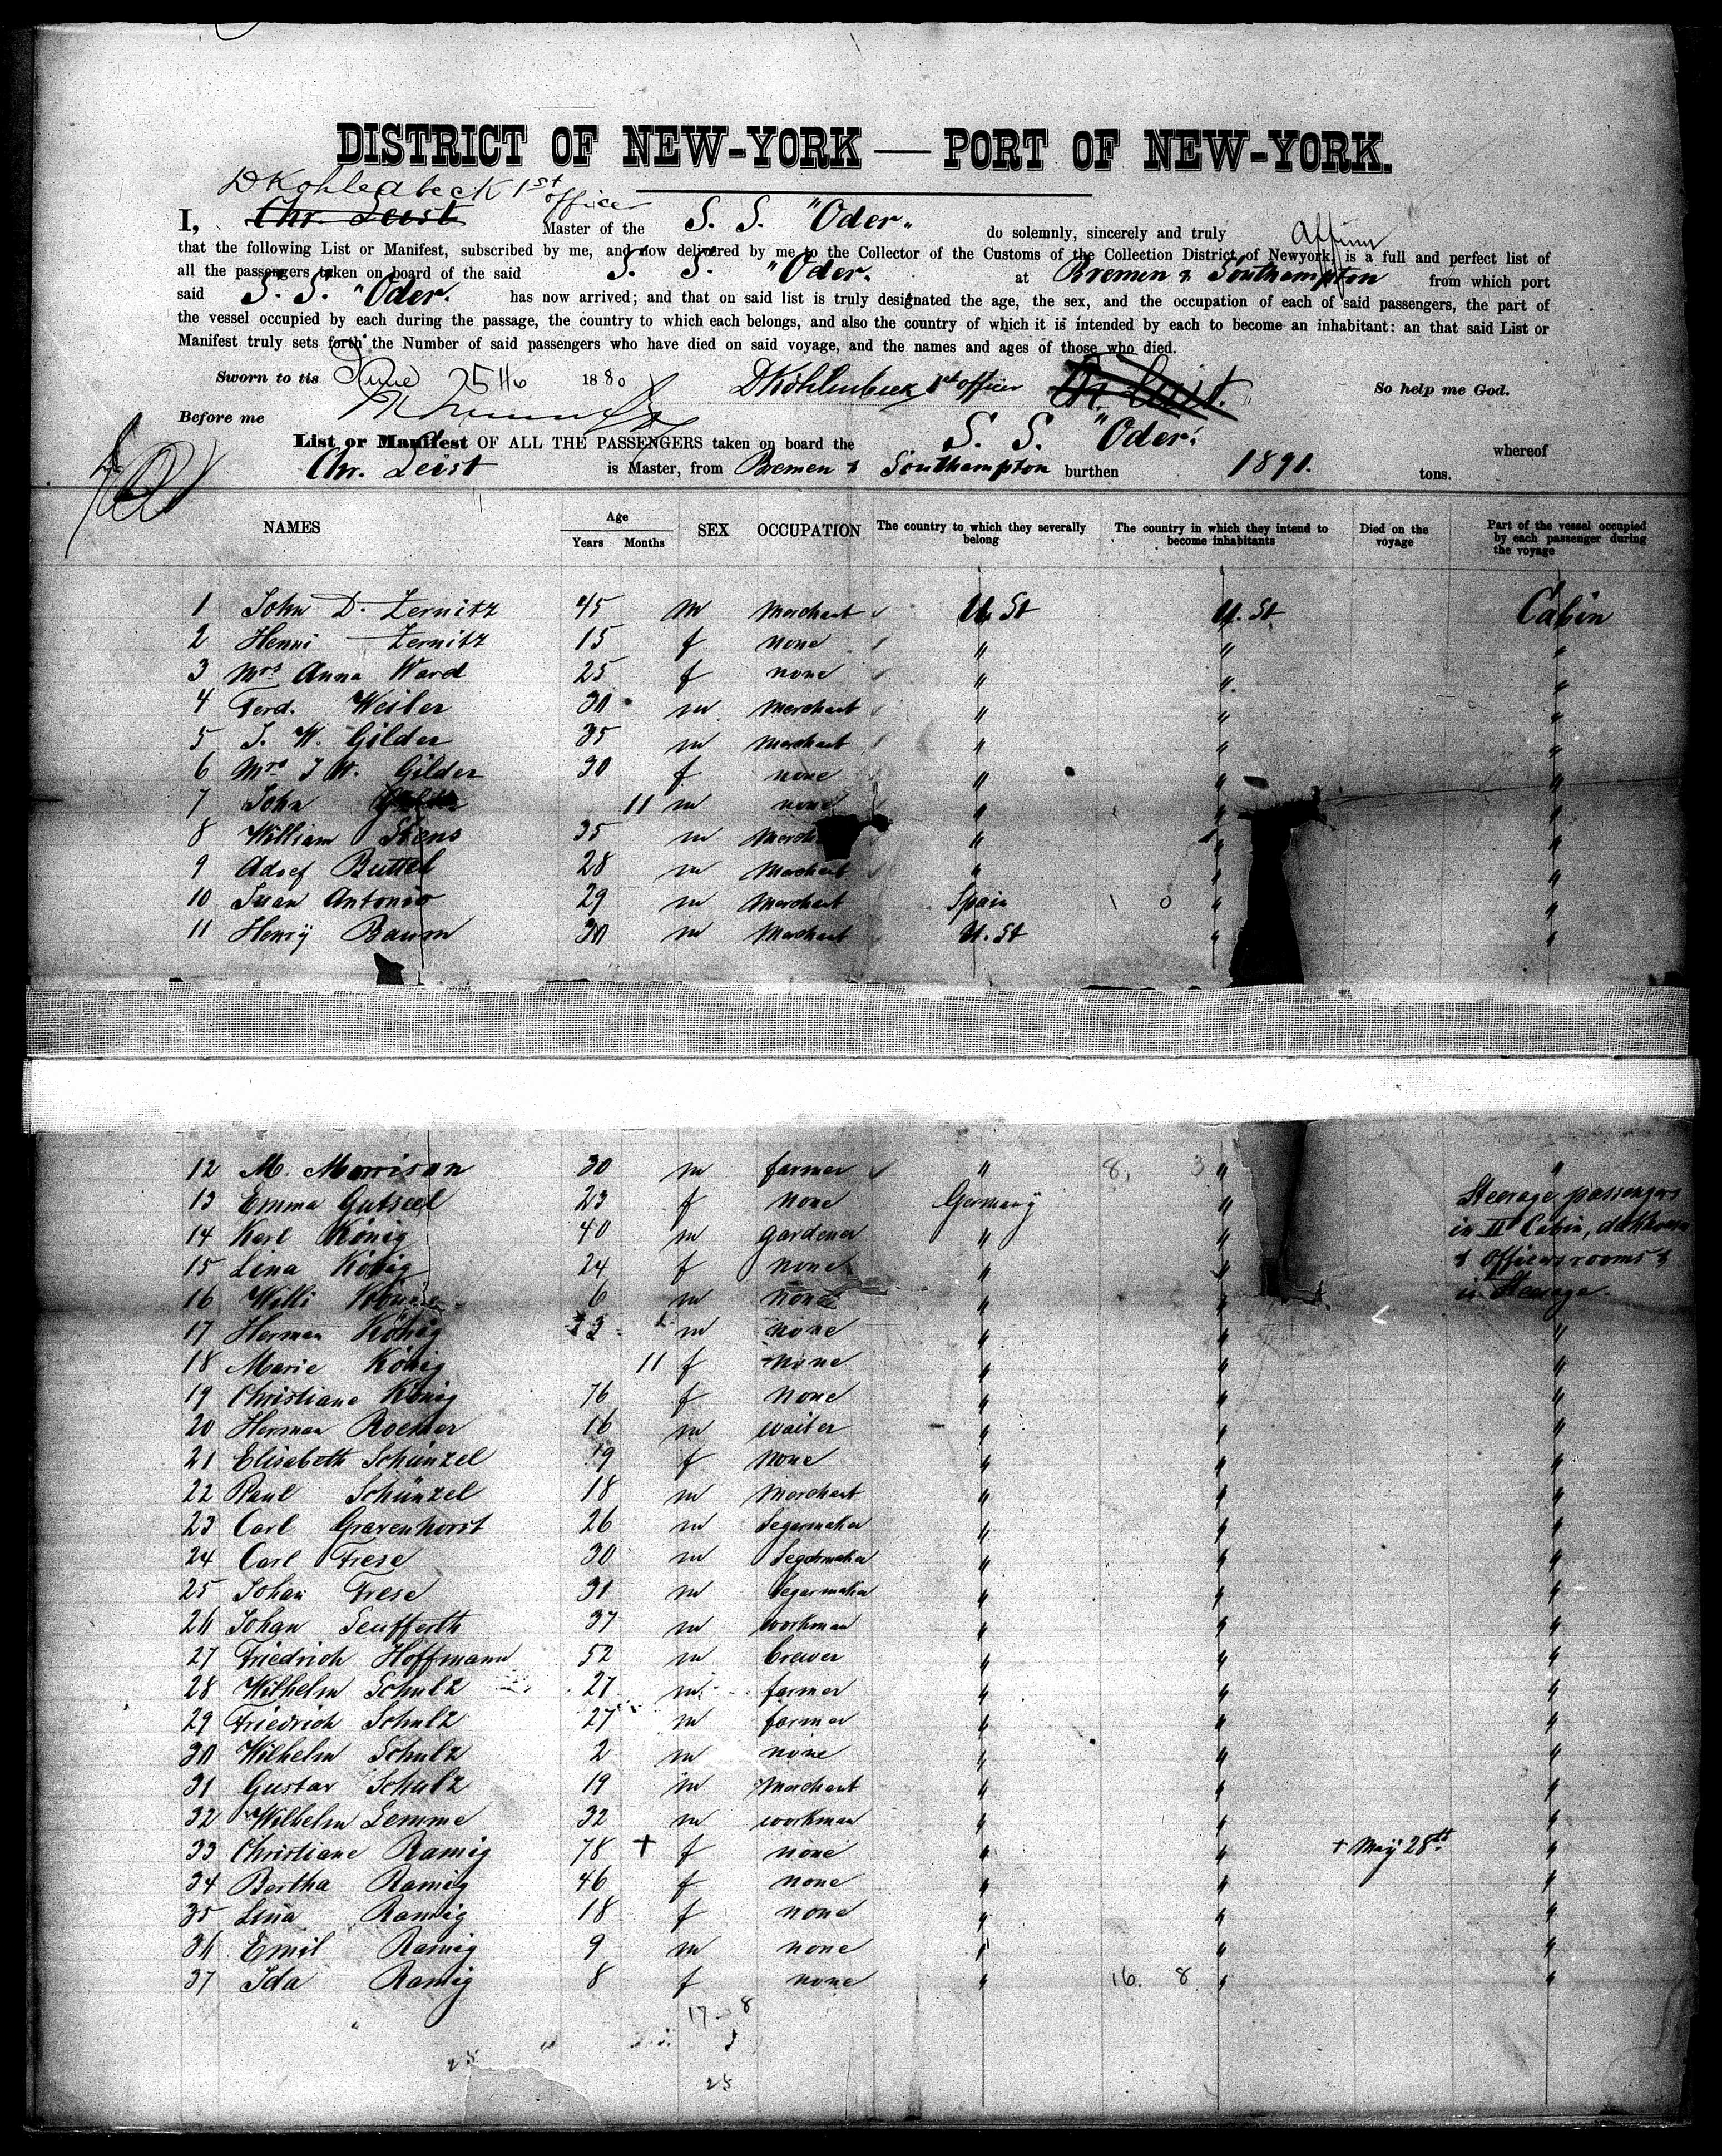 DISTRICT OF NEW-YORK — PORT OF NEW-YORK.
D Kohlenbeck 1st officer
I, Chr. Leist Master of the S. S. "Oder" do solemnly, sincerely and truly affirm
that the following List or Manifest, subscribed by me, and now delivered by me to the Collector of the Customs of the Collection District of Newyork, is a full and perfect list of
all the passengers taken on board of the said S. S. "Oder." at Bremen & Southampton from which port
said S. S. "Oder. has now arrived; and that on said list is truly designated the age, the sex, and the occupation of each of said passengers, the part of
the vessel occupied by each during the passage, the country to which each belongs, and also the country of which it is intended by each to become an inhabitant: an that said List or
Manifest truly sets forth the Number of said passengers who have died on said voyage, and the names and ages of those who died.
Sworn to tis June 25th 1880 DKohlenbeck 1st officer Chr. Leist. So help me God.
Before me
List or Manifest OF ALL THE PASSENGERS taken on board the S. S. "Oder." whereof
Chr. Leist is Master, from Bremen & Southampton burthen 1891. tons.
NAMES Age Years Months SEX OCCUPATION The country to which they severally belong The country in which they intend to become inhabitants Died on the voyage Part of the vessel occupied by each passenger during the voyage
1 John D. Zernitz 45 m Merchant U. St U. St. Cabin
2 Henni Zernitz 15 f none " " "
3 Mrs Anna Ward 25 f none " " "
4 Ferd. Weiler 30 m Merchant " " "
5 J. W. Gilder 35 m Merchant " " "
6 Mrs J W. Gilder 30 f none " " "
7 John 11 m none " " "
8 William Stens 35 m Merch " " "
9 Adolf Buttel 28 m Merchant " " "
10 Juan Antonio 29 m Merchant Spain 1 0 " "
11 Henry Baum 30 m Merchant U. St " "
12 M. Morrison 30 m farmer " 8, 3 " "
13 Emma Gutseel 23 f none Germany " Steerage passengers
14 Karl König 40 m gardener " " in II Cabin,
15 Lina König 24 f none " " & Officersrooms &
16 Willi König 6 m none " " in Steerage.
17 Herman König 3 m none " " "
18 Marie König 11 f none " " "
19 Christiane König 76 f none " " "
20 Herman Roemer 16 m waiter " " "
21 Elisabeth Schünzel 19 f none " " "
22 Paul Schünzel 18 m Merchant " " "
23 Carl Gravenhorst 26 m Segarmaker " " "
24 Carl Frese 30 m Segarmaker " " "
25 Johan Frese 31 m Segarmaker " " "
26 Johan Seufferth 37 m workman " " "
27 Friedrich Hoffmann 52 m brewer " " "
28 Wilhelm Schulz 27 m farmer " " "
29 Friedrich Schulz 27 m farmer " " "
30 Wilhelm Schulz 2 m none " " "
31 Gustav Schulz 19 m Merchant " " "
32 Wilhelm Lemme 32 m workman " " "
33 Christiane Ramig 78 + f none " " + May 28th "
34 Bertha Ramig 46 f none " " "
35 Lina Ramig 18 f none " " "
36 Emil Ramig 9 m none " " "
37 Ida Ramig 8 f none " 16. 8 " "
17 8
25
25